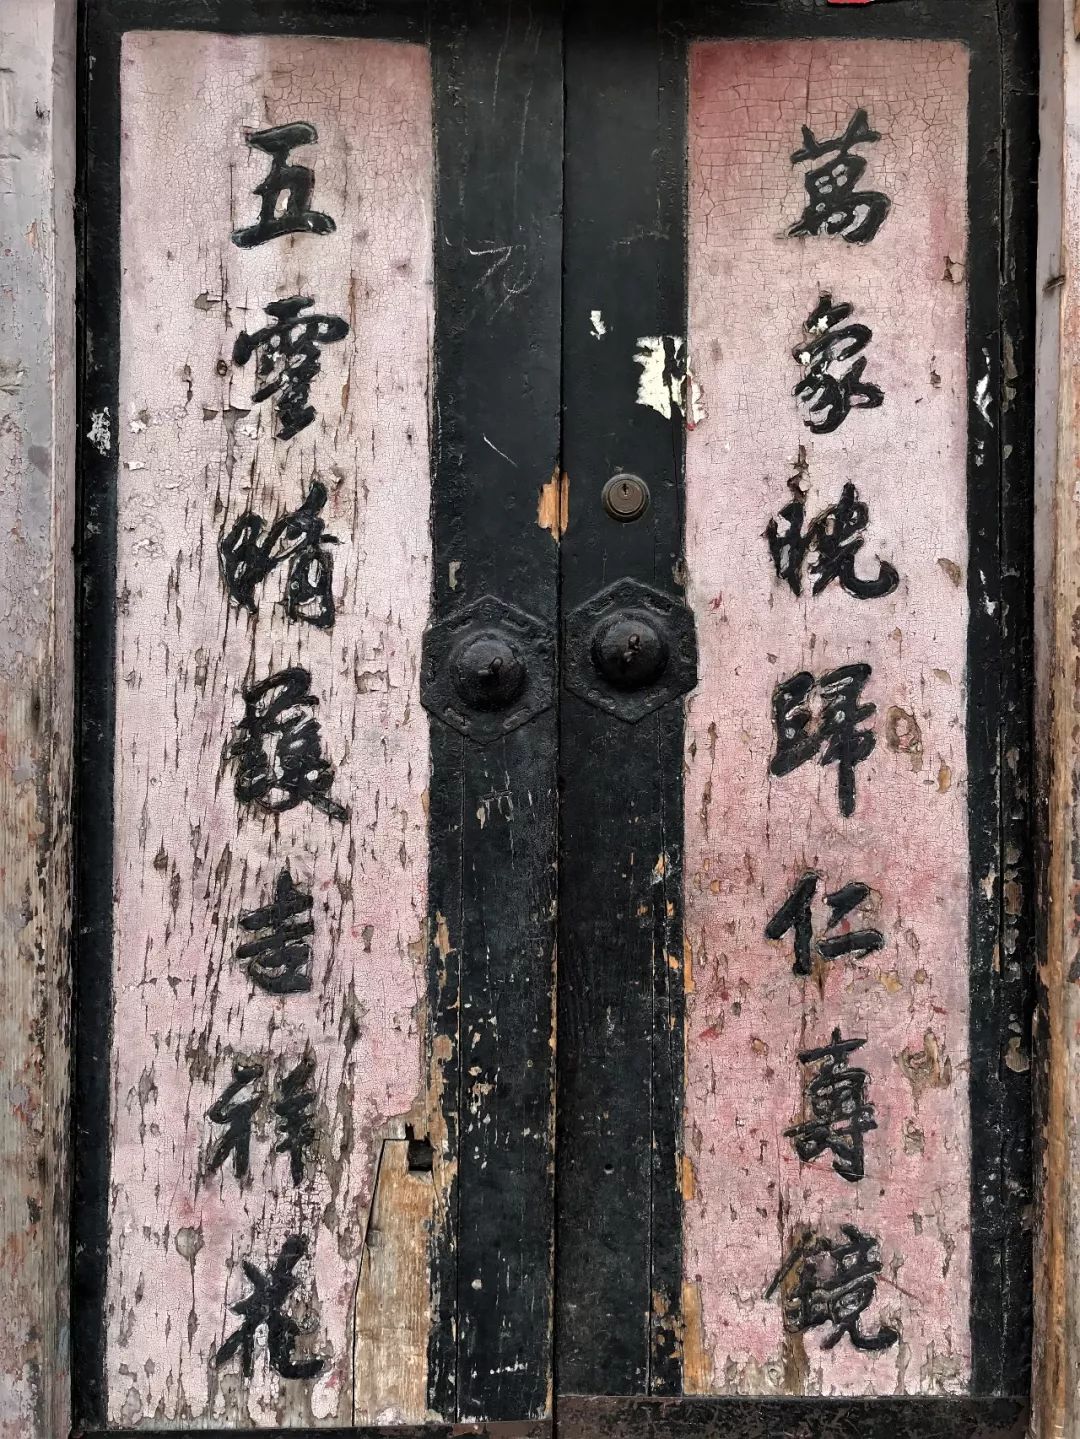 萬象曉歸仁壽鏡
五雲晴護吉祥花